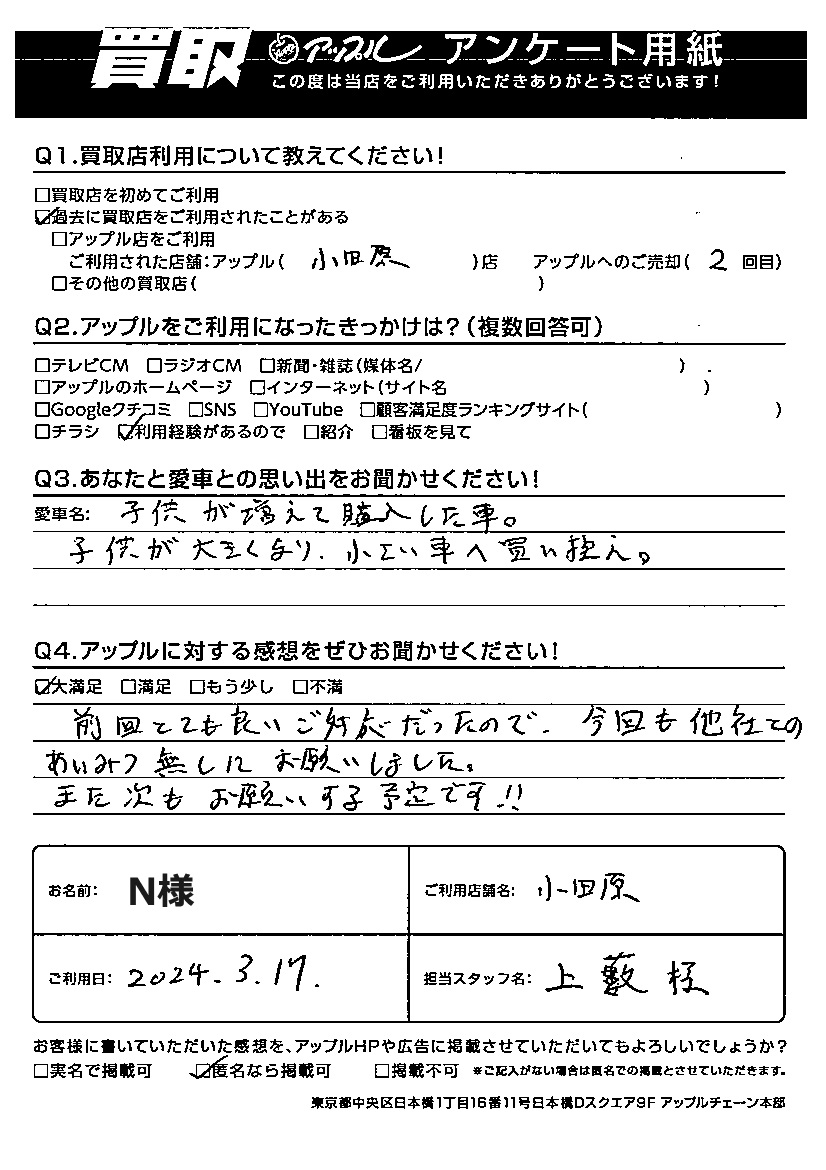 買取 アップル アンケート用紙
この度は当店をご利用いただきありがとうございます!
Q1.買取店利用について教えてください!
□買取店を初めてご利用
☑過去に買取店をご利用されたことがある
□アップル店をご利用
ご利用された店舗:アップル( 小田原 )店 アップルへのご売却( 2 回目)
□その他の買取店( )
Q2.アップルをご利用になったきっかけは?(複数回答可)
□テレビCM □ラジオCM □新聞・雑誌(媒体名/ )
□アップルのホームページ □インターネット(サイト名 )
□Googleクチコミ □SNS □YouTube □顧客満足度ランキングサイト( )
□チラシ ☑利用経験があるので □紹介 □看板を見て
Q3.あなたと愛車との思い出をお聞かせください!
愛車名: 子供が増えて購入した車。
子供が大きくなり、小さい車へ買い換え。
Q4.アップルに対する感想をぜひお聞かせください!
☑大満足 □満足 □もう少し □不満
前回とても良いご対応だったので、今回も他社との
あいみつ無しにお願いしました。
また次もお願いする予定です!!
お名前: N様 ご利用店舗名: 小田原
ご利用日: 2024.3.17. 担当スタッフ名: 上藪様
お客様に書いていただいた感想を、アップルHPや広告に掲載させていただいてもよろしいでしょうか?
□実名で掲載可 ☑匿名なら掲載可 □掲載不可 ※ご記入がない場合は匿名での掲載とさせていただきます。
東京都中央区日本橋1丁目16番11号日本橋Dスクエア9F アップルチェーン本部